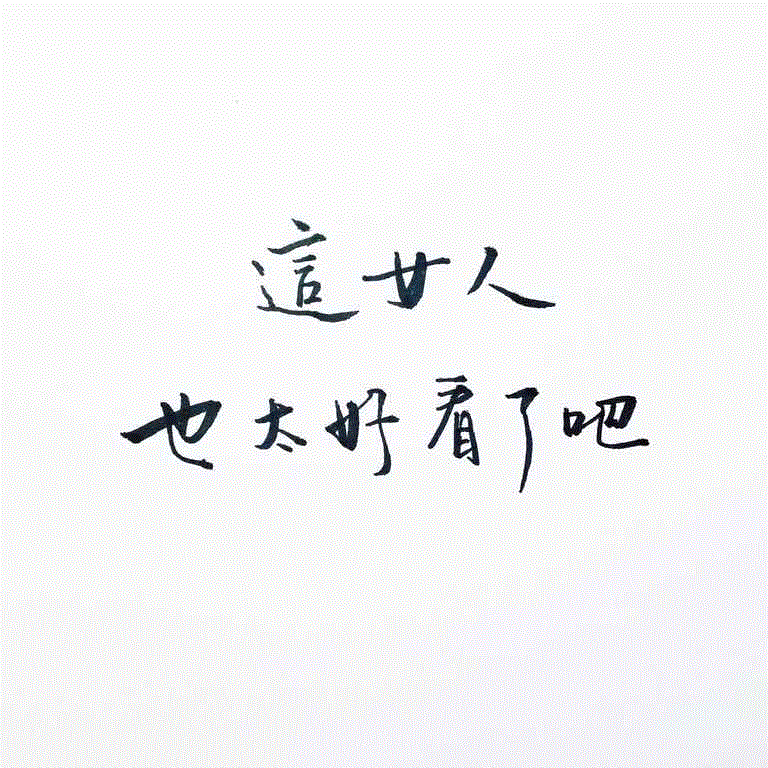 這女人
也太好看了吧